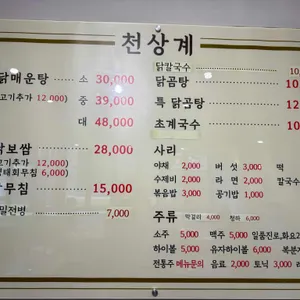 천상계
닭매운탕 소 30,000
고기추가 12,000) 중 39,000
대 48,000
보쌈 28,000
고기추가 12,000)
명태회무침 6,000)
무침 15,000
밀전병 7,000
닭칼국수 10
닭곰탕 10
특 닭곰탕 12
초계국수 10
사리
야채 2,000 버섯 3,000 떡
수제비 2,000 라면 2,000 칼국
볶음밥 3,000 공기밥 1,000
주류 막걸리 4,000 청하 6,000
소주 5,000 맥주 5,000 일품진로,화요
하이볼 5,000 유자하이볼 6,000 복분
전통주 메뉴문의 음료 2,000 토닉 3,000